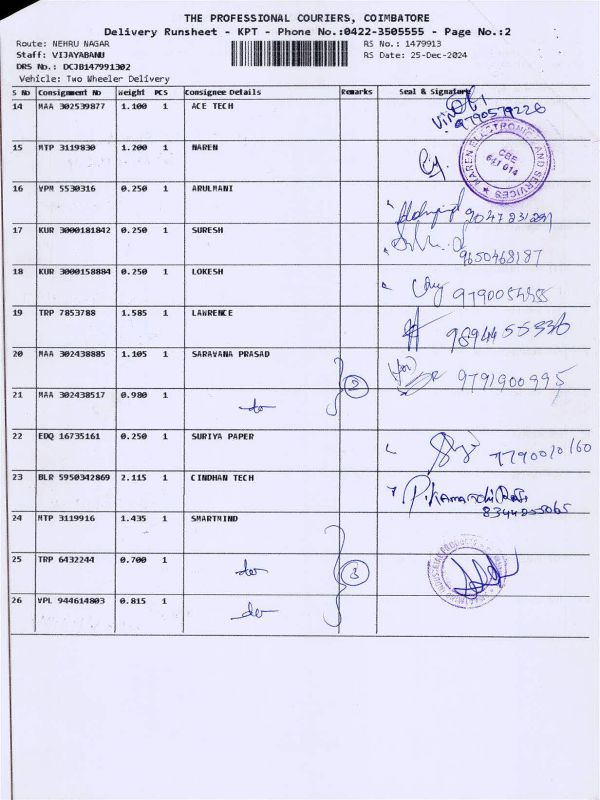 THE PROFESSIONAL COURIERS, COIMBATORE
Delivery Runsheet - KPT - Phone No.:0422-3505555 - Page No.:2
Route: NEHRU NAGAR RS No.: 1479913
Staff: VIJAYABANU RS Date: 25-Dec-2024
DRS No.: DCJB147991302
Vehicle: Two Wheeler Delivery
S No Consignment No Weight PCS Consignee Details Remarks Seal & Signature
14 MAA 302539877 1.100 1 ACE TECH
9790579226
15 MTP 3119830 1.200 1 NAREN
NAREN ELECTRONICS AND SERVICES
CBE
641 014
16 VPM 5530316 0.250 1 ARULMANI
17 KUR 3000181842 0.250 1 SURESH 9650468187
18 KUR 3000158884 0.250 1 LOKESH
19 TRP 7853788 1.585 1 LAWRENCE 9894455336
20 MAA 302438885 1.105 1 SARAVANA PRASAD 2 9791900995
21 MAA 302438517 0.980 1 do
22 EDQ 16735161 0.250 1 SURIYA PAPER
23 BLR 5950342869 2.115 1 CINDHAN TECH
24 MTP 3119916 1.435 1 SMARTMIND
25 TRP 6432244 0.700 1 do 3
26 VPL 944614803 0.815 1 do